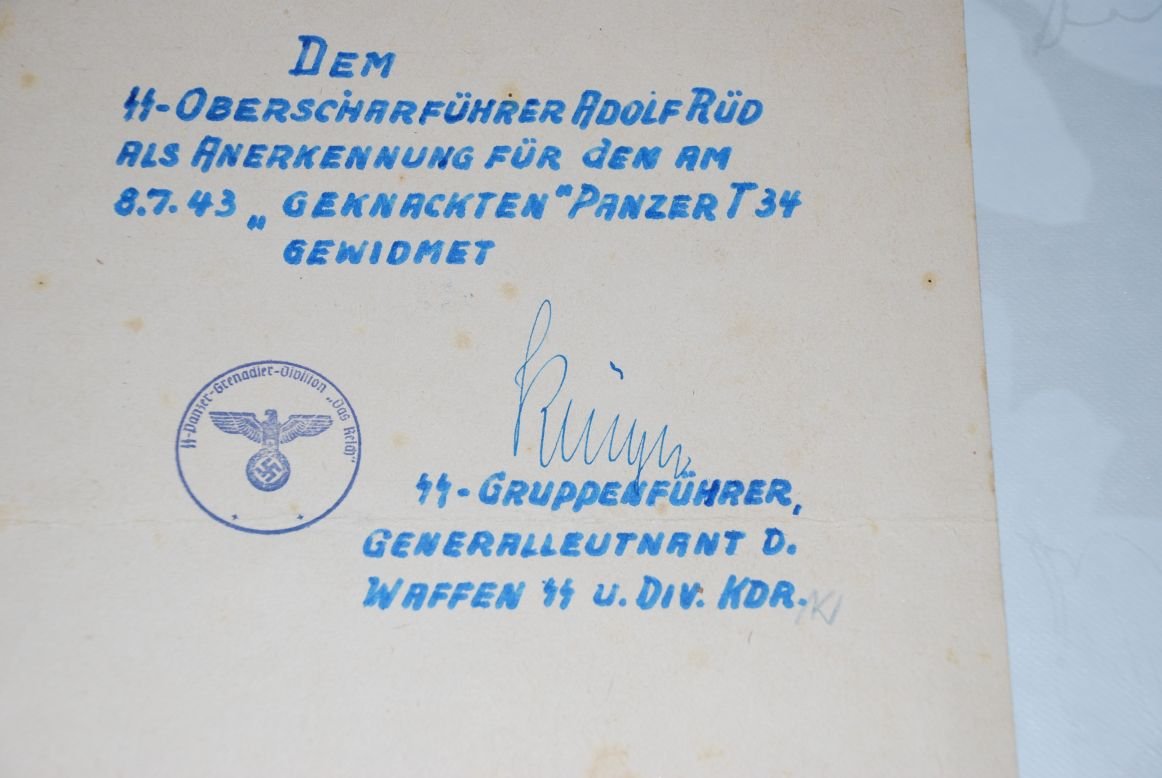 DEM
ᛋᛋ-OBERSCHARFÜHRER ADOLF RÜD
ALS ANERKENNUNG FÜR DEN AM
8.7.43 „GEKNACKTEN" PANZER T 34
GEWIDMET
ᛋᛋ-Panzer-Grenadier-Division „Das Reich"
ᛋᛋ-GRUPPENFÜHRER,
GENERALLEUTNANT D.
WAFFEN ᛋᛋ U. DIV. KDR.